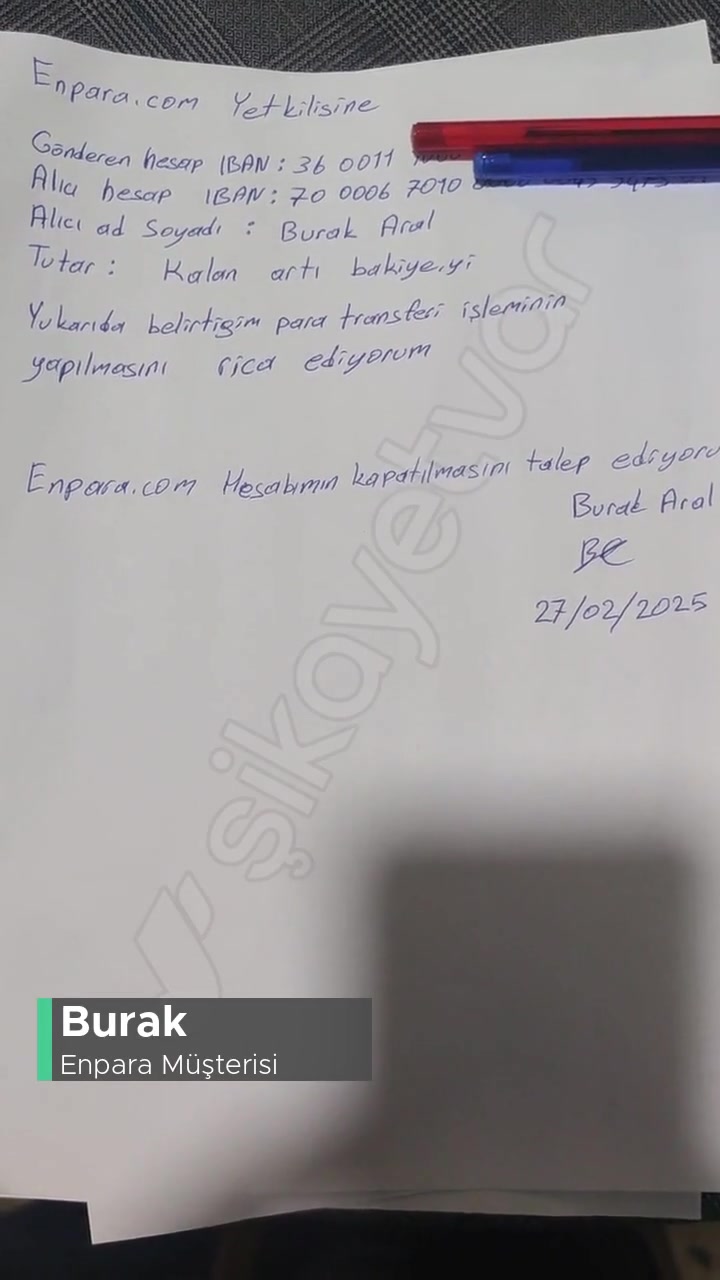 Enpara.com Yetkilisine
Gönderen hesap IBAN : 36 0011
Alıcı hesap IBAN : 70 0006 7010
Alıcı ad Soyadı : Burak Aral
Tutar : Kalan artı bakiye.yi
Yukarıda belirtigim para transferi işleminin
yapılmasını rica ediyorum
Enpara.com Hesabımın kapatılmasını talep ediyoru
Burak Aral
27/02/2025
şikayetvar
Burak
Enpara Müşterisi